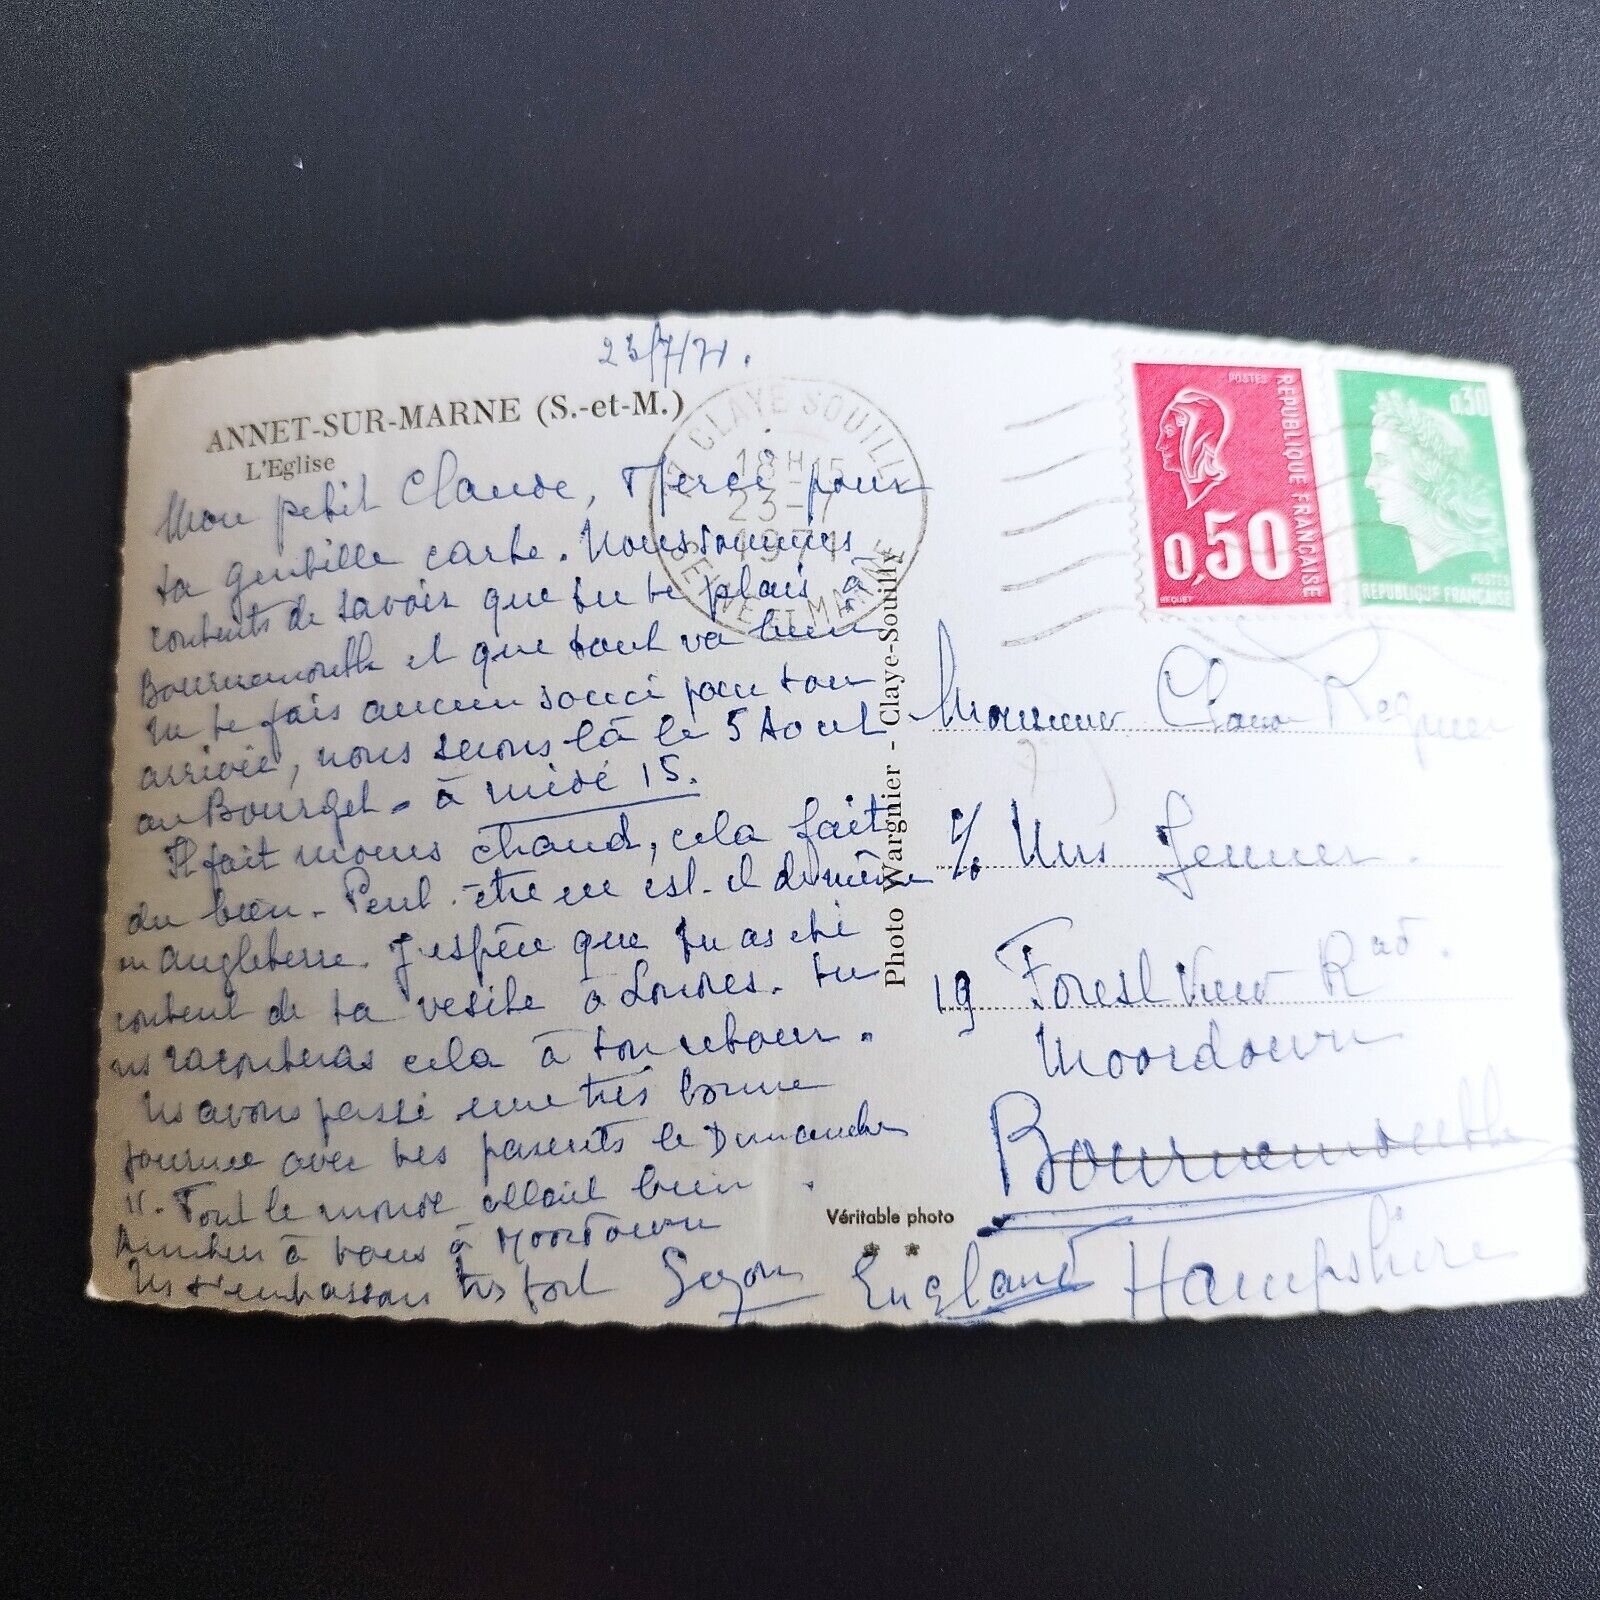 23/7/71.
ANNET-SUR-MARNE (S.-et-M.)
L'Eglise
CLAYE SOUILLY
18 H 15
23-7
1971
SEINE ET MARNE
POSTES
REPUBLIQUE FRANÇAISE
0,50
BEQUET
0,30
POSTES
REPUBLIQUE FRANÇAISE
Mon petit Claude, Merci pour
ta gentille carte. Nous sommes
contents de savoir que tu te plais à
Bournemouth et que tout va bien
Ne te fais aucun souci pour ton
arrivée, nous serons là le 5 Aout
au Bourget - à midi 15.
Il fait moins chaud, cela fait
du bien - Peut-être en est-il de même
en Angleterre. J'espère que tu as été
content de ta visite à Londres. tu
ns raconteras cela à ton retour.
Ns avons passé une très bonne
journée avec tes parents le Dimanche
11. Tout le monde allait bien.
à vous à Moordown
Ns t'embrassons très fort
Photo Wargnier - Claye-Souilly
Véritable photo
Monsieur Claude Regnier
c/o Mrs Jenner.
19 Forest View Road.
Moordown
Bournemouth
England Hampshire